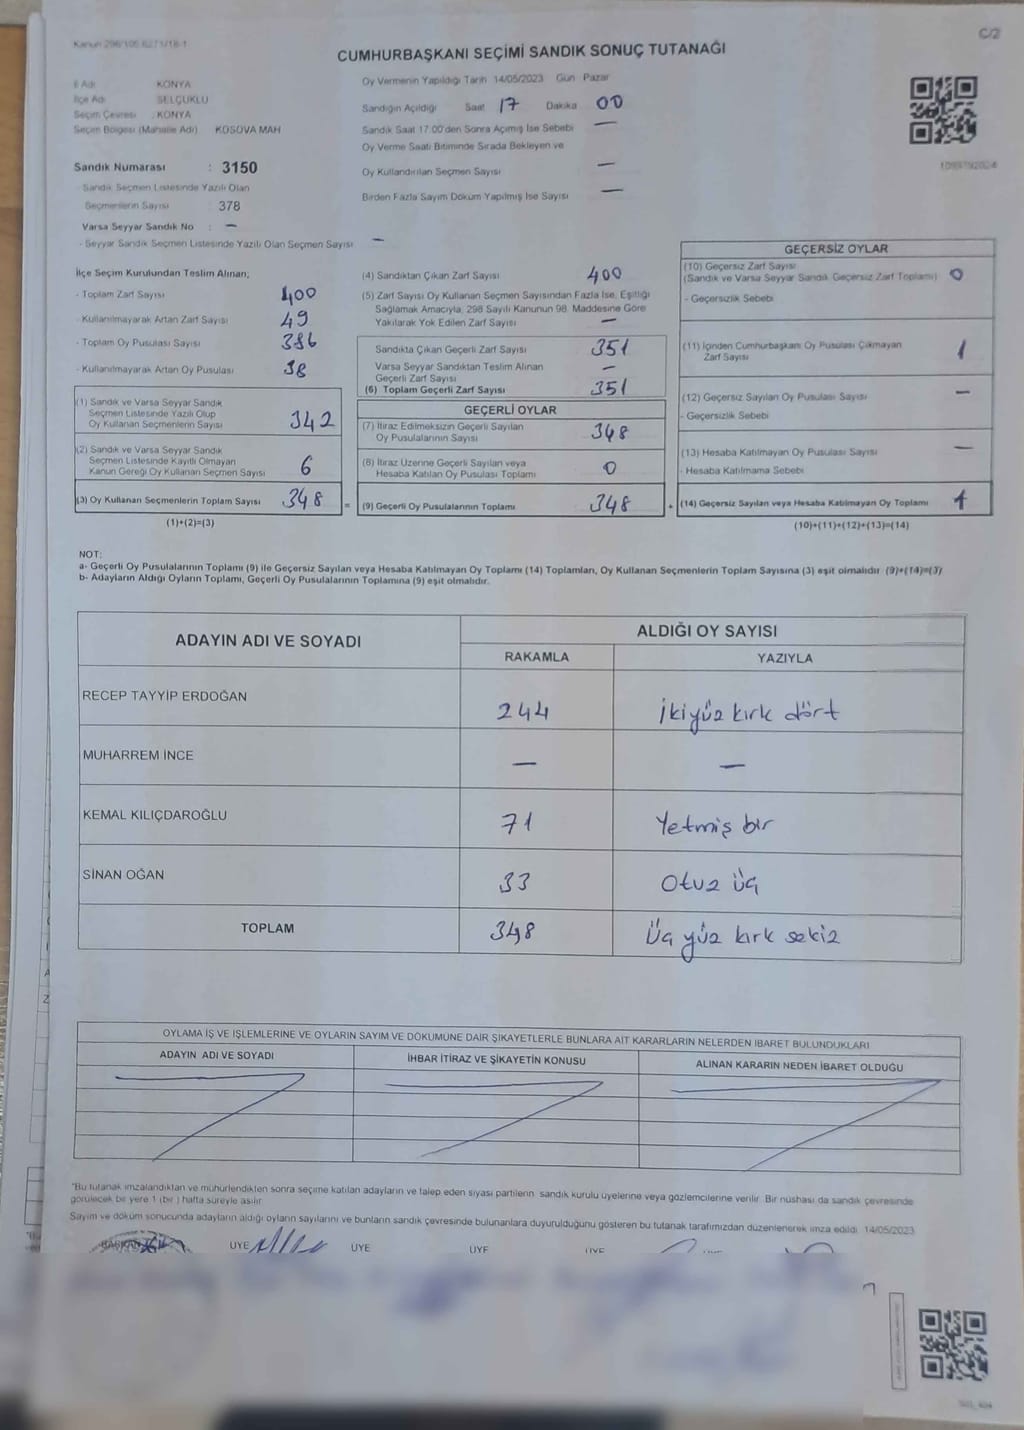 Kanun 298/105 6271/18-1
C/2
CUMHURBAŞKANI SEÇİMİ SANDIK SONUÇ TUTANAĞI
İl Adı KONYA
İlçe Adı SELÇUKLU
Seçim Çevresi : KONYA
Seçim Bölgesi (Mahalle Adı) KOSOVA MAH
Oy Vermenin Yapıldığı Tarih 14/05/2023 Gün Pazar
Sandığın Açıldığı Saat 17 Dakika 00
Sandık Saat 17:00'den Sonra Açımış İse Sebebi —
Oy Verme Saati Bitiminde Sırada Bekleyen ve
Oy Kullandırılan Seçmen Sayısı —
Birden Fazla Sayım Döküm Yapılmış İse Sayısı —
Sandık Numarası : 3150
- Sandık Seçmen Listesinde Yazılı Olan
Seçmenlerin Sayısı : 378
Varsa Seyyar Sandık No : —
- Seyyar Sandık Seçmen Listesinde Yazılı Olan Seçmen Sayısı —
İlçe Seçim Kurulundan Teslim Alınan;
- Toplam Zarf Sayısı 400
- Kullanılmayarak Artan Zarf Sayısı 49
- Toplam Oy Pusulası Sayısı 386
- Kullanılmayarak Artan Oy Pusulası 38
(1) Sandık ve Varsa Seyyar Sandık
Seçmen Listesinde Yazılı Olup
Oy Kullanan Seçmenlerin Sayısı 342
(2) Sandık ve Varsa Seyyar Sandık
Seçmen Listesinde Kayıtlı Olmayan
Kanun Gereği Oy Kullanan Seçmen Sayısı 6
(3) Oy Kullanan Seçmenlerin Toplam Sayısı 348 =
(1)+(2)=(3)
(4) Sandıktan Çıkan Zarf Sayısı 400
(5) Zarf Sayısı Oy Kullanan Seçmen Sayısından Fazla İse, Eşitliği
Sağlamak Amacıyla, 298 Sayılı Kanunun 98. Maddesine Göre
Yakılarak Yok Edilen Zarf Sayısı —
Sandıkta Çıkan Geçerli Zarf Sayısı 351
Varsa Seyyar Sandıktan Teslim Alınan
Geçerli Zarf Sayısı —
(6) Toplam Geçerli Zarf Sayısı 351
GEÇERLİ OYLAR
(7) İtiraz Edilmeksizin Geçerli Sayılan
Oy Pusulalarının Sayısı 348
(8) İtiraz Üzerine Geçerli Sayılan veya
Hesaba Katılan Oy Pusulası Toplamı 0
(9) Geçerli Oy Pusulalarının Toplamı 348 +
GEÇERSİZ OYLAR
(10) Geçersiz Zarf Sayısı
(Sandık ve Varsa Seyyar Sandık Geçersiz Zarf Toplamı) 0
- Geçersizlik Sebebi
(11) İçinden Cumhurbaşkanı Oy Pusulası Çıkmayan
Zarf Sayısı 1
(12) Geçersiz Sayılan Oy Pusulası Sayısı —
- Geçersizlik Sebebi
(13) Hesaba Katılmayan Oy Pusulası Sayısı —
- Hesaba Katılmama Sebebi
(14) Geçersiz Sayılan veya Hesaba Katılmayan Oy Toplamı 1
(10)+(11)+(12)+(13)=(14)
NOT:
a- Geçerli Oy Pusulalarının Toplamı (9) ile Geçersiz Sayılan veya Hesaba Katılmayan Oy Toplamı (14) Toplamları, Oy Kullanan Seçmenlerin Toplam Sayısına (3) eşit olmalıdır. (9)+(14)=(3)
b- Adayların Aldığı Oyların Toplamı, Geçerli Oy Pusulalarının Toplamına (9) eşit olmalıdır.
ADAYIN ADI VE SOYADI ALDIĞI OY SAYISI
RAKAMLA YAZIYLA
RECEP TAYYİP ERDOĞAN 244 İkiyüz kırk dört
MUHARREM İNCE — —
KEMAL KILIÇDAROĞLU 71 Yetmiş bir
SİNAN OĞAN 33 Otuz üç
TOPLAM 348 Üç yüz kırk sekiz
OYLAMA İŞ VE İŞLEMLERİNE VE OYLARIN SAYIM VE DÖKÜMÜNE DAİR ŞİKAYETLERLE BUNLARA AİT KARARLARIN NELERDEN İBARET BULUNDUKLARI
ADAYIN ADI VE SOYADI İHBAR İTİRAZ VE ŞİKAYETİN KONUSU ALINAN KARARIN NEDEN İBARET OLDUĞU
"Bu tutanak imzalandıktan ve mühürlendikten sonra seçime katılan adayların ve talep eden siyasi partilerin sandık kurulu üyelerine veya gözlemcilerine verilir. Bir nüshası da sandık çevresinde
görülecek bir yere 1 (bir) hafta süreyle asılır.
Sayım ve döküm sonucunda adayların aldığı oyların sayılarını ve bunların sandık çevresinde bulunanlara duyurulduğunu gösteren bu tutanak tarafımızdan düzenlenerek imza edildi. 14/05/2023
BAŞKAN ÜYE ÜYE ÜYE ÜYE